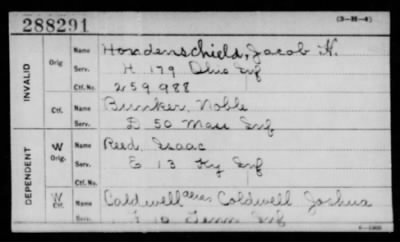 288291 (3-M-4)
INVALID Orig. Name Hondenschield, Jacob H.
Serv. H 179 Ohio Inf
Ctf. No. 259988
Ctf. Name Bunker, Noble
Serv. D 50 Mass Inf
DEPENDENT W Orig. Name Reed, Isaac
Serv. E 13 Ky Inf
Ctf. No.
W Ctf. Name Caldwell alias Coldwell Joshua
Serv. 10 Tenn Inf